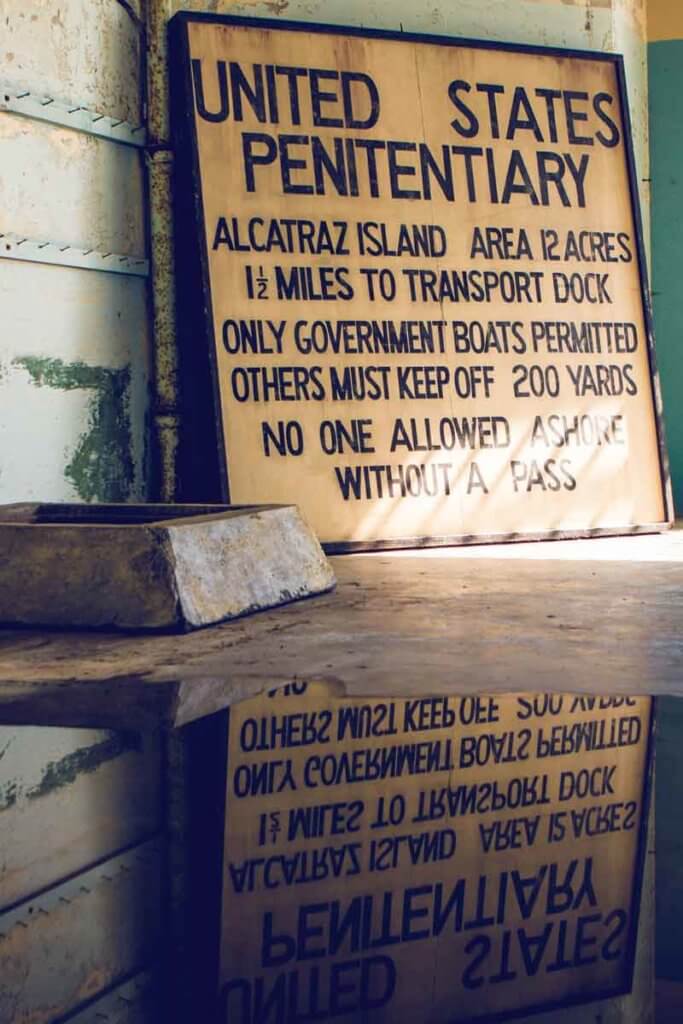 UNITED STATES
PENITENTIARY
ALCATRAZ ISLAND AREA 12 ACRES
1 1/2 MILES TO TRANSPORT DOCK
ONLY GOVERNMENT BOATS PERMITTED
OTHERS MUST KEEP OFF 200 YARDS
NO ONE ALLOWED ASHORE
WITHOUT A PASS